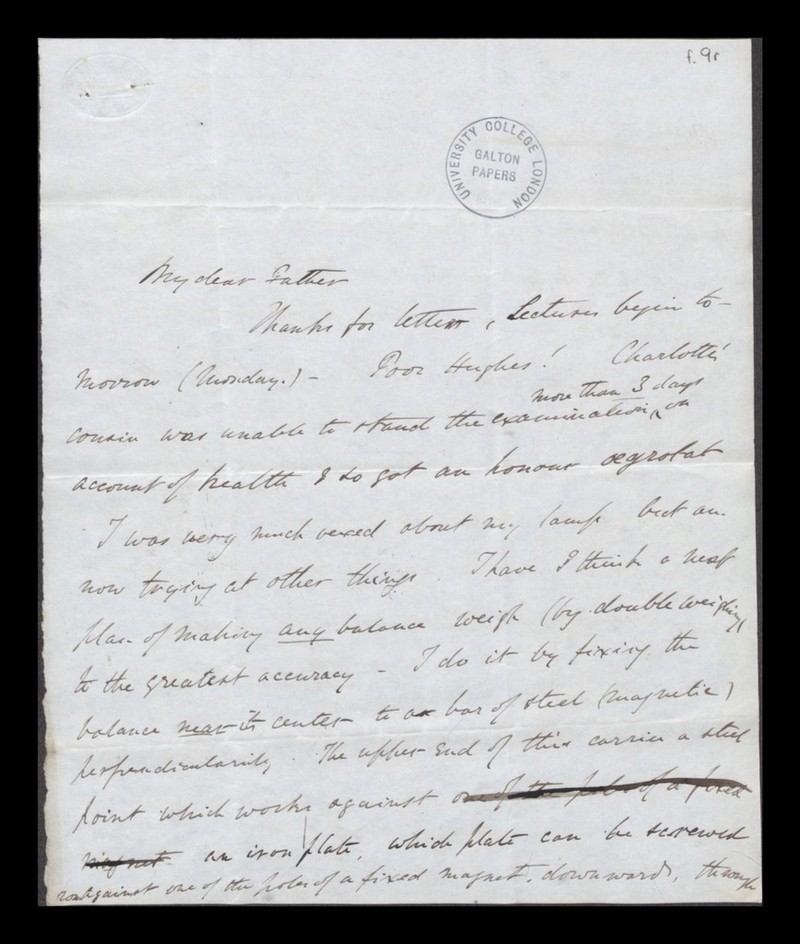 f. 9r
UNIVERSITY COLLEGE LONDON
GALTON
PAPERS
My dear Father
Thanks for letters, Lectures begin to-
morrow (Monday.) - Poor Hughes! Charlotte's
more than 3 days
cousin was unable to stand the examination, on
account of health & so got an honour ægrotat
I was very much vexed about my lamp but am
now trying at other things. I have I think a neat
plan of making any balance weigh (by double weighing)
to the greatest accuracy - I do it by fixing the
balance near its center to a bar of steel (magnetic)
perpendicularily. The upper end of this carries a steel
point which works against one of the poles of a fixed
magnet an iron plate, which plate can be screwed
against one of the poles of a fixed magnet. downwards, through